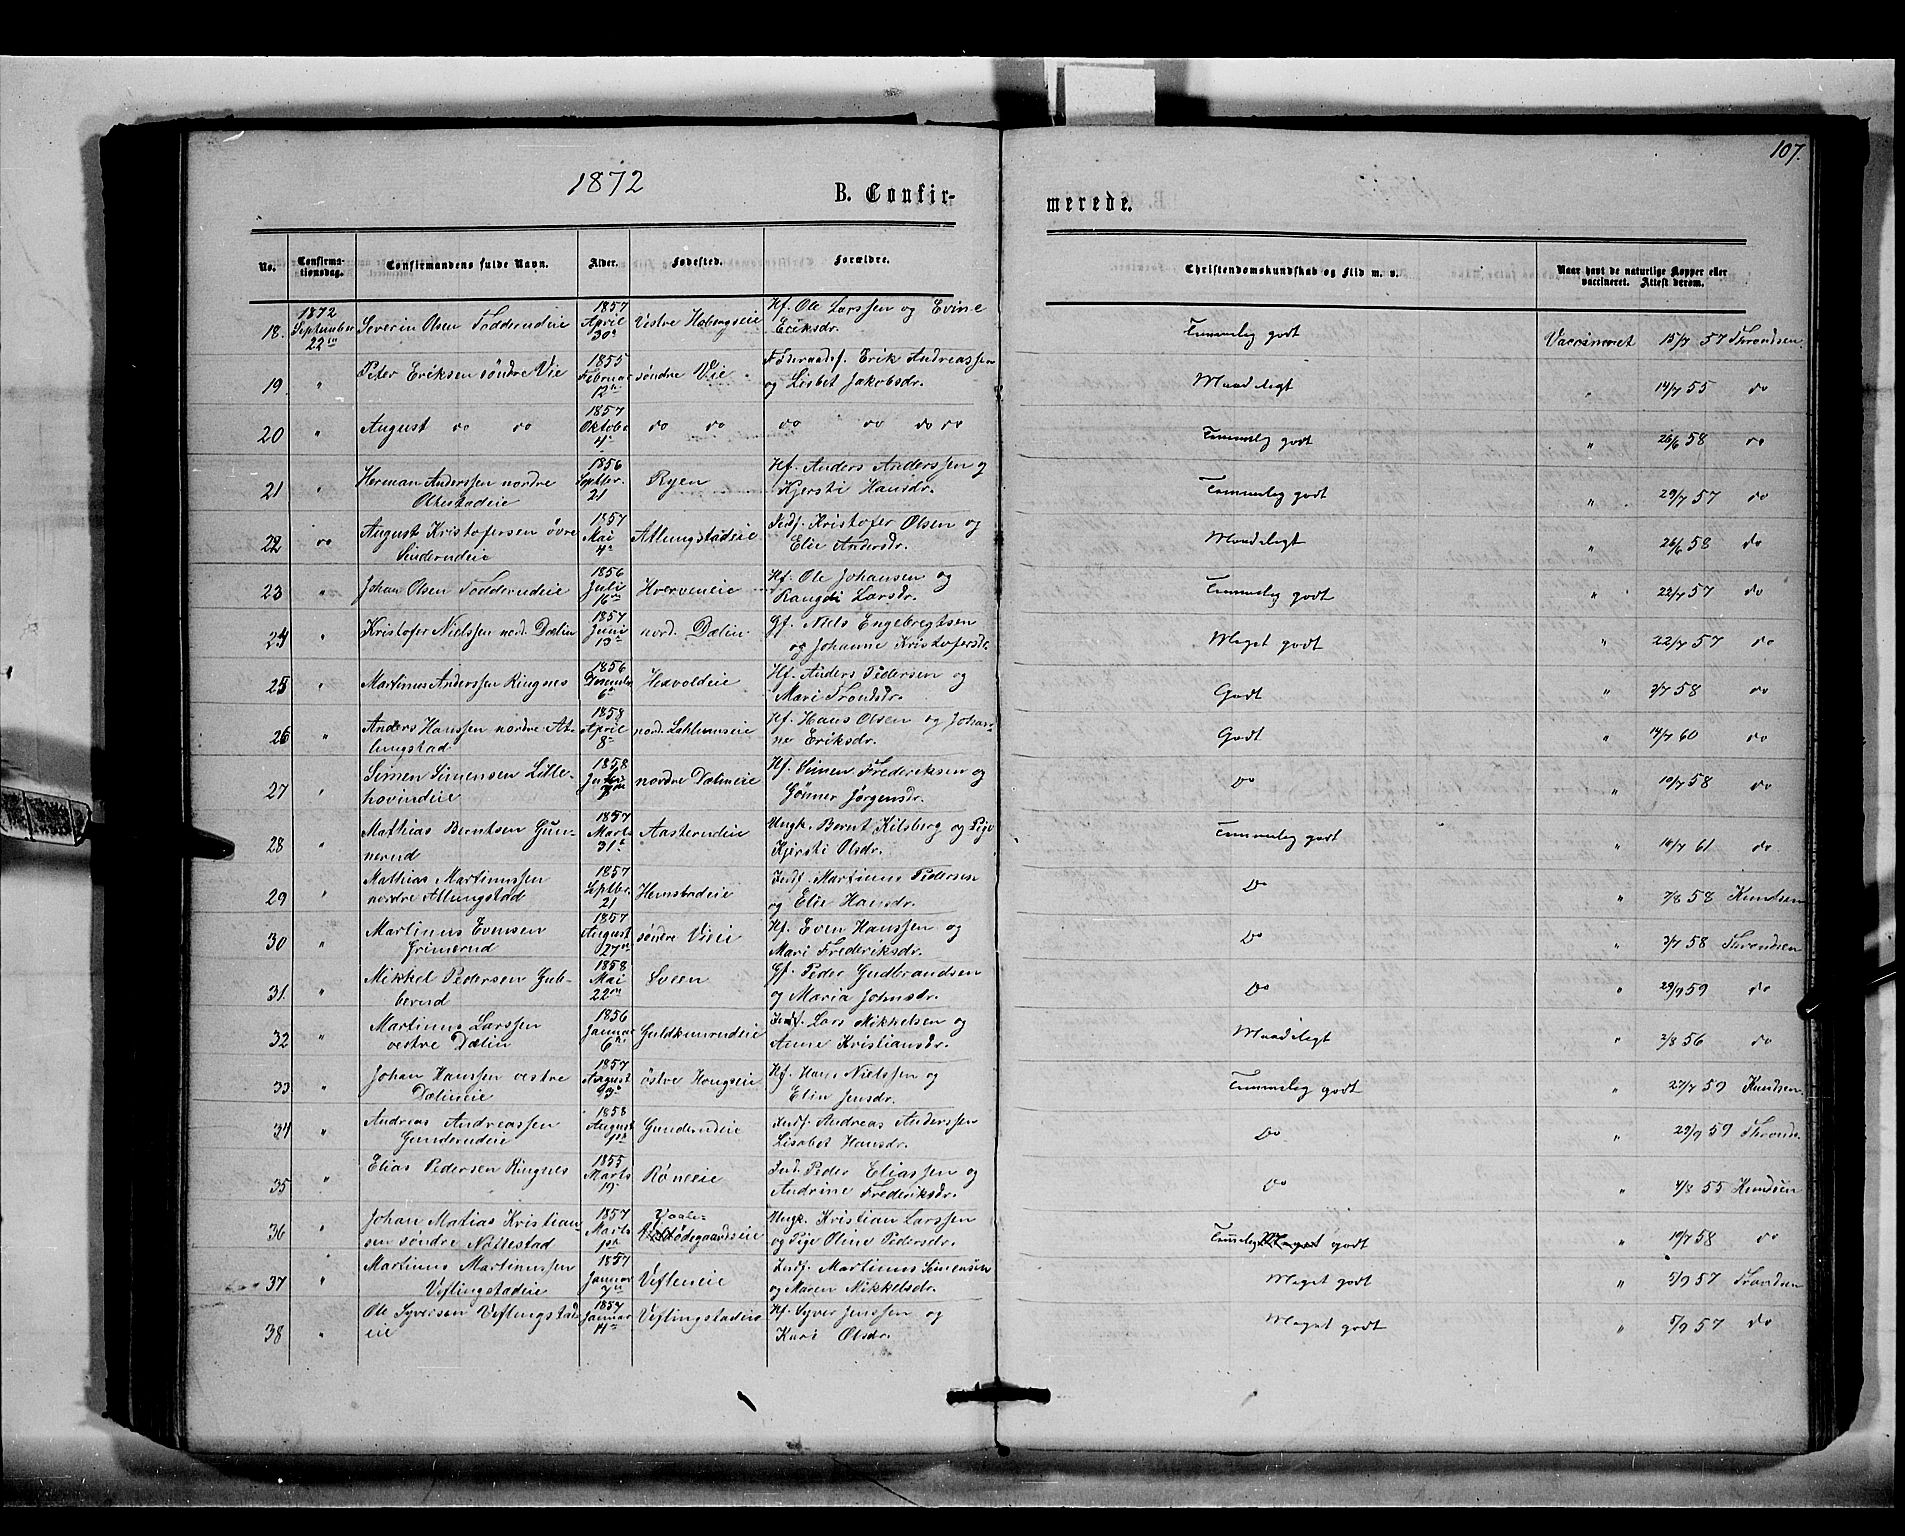 107.
1872
B. Confir-
merede.
No. Confirma-
tionsdag. Confirmandens fulde Navn. Alder. Fødested. Forældre. Christendomskundskab og Flid m. v. Naar havt de naturlige Kopper eller
vaccineret. Attest derom.
18. 1872 September 22de Severin Olsen Fodderudeie 1857 April 30te Vestre Hobergseie Hf. Ole Larssen og Evine Eriksdr. Temmelig godt Vaccineret 15/7 57 Throndsen.
19. " Peter Eriksen søndre Vie 1855 Februar 12te søndre Vie Føderaadsf. Erik Andreassen og Lisbet Jakobsdr. Maadeligt " 14/7 55 do
20 " August do do 1857 Oktobe 4de do do do do do do Temmelig godt " 26/6 58 do
21 " Herman Anderssen nordre Alkestadeie 1856 Septbr. 21 Ryen Hf. Anders Anderssen og Kjersti Hansdr. Temmelig godt " 29/7 57 do
22 do August Kristofersen øvre Linderudeie 1857 Mai 4de Atlungstadeie Inds. Kristofer Olsen og Elie Andersdr. Maadeligt " 26/6 58 do
23 " Johan Olsen Fodderudeie 1856 Juli 16de Hverveneie Hf. Ole Johansen og Rangdi Larsdr. Temmelig godt " 22/7 57 do
24 " Kristofer Nielssen nord. Dælin 1857 Juni 13de nord. Dælin Gf. Niels Engebregtsen og Johanne Kristofersdr. Meget godt " 22/7 57 do
25 " Martinus Anderssen Ringnes 1856 December 6te Hexvoldeie Hf. Anders Pedersen og Mari Trondsdr. Godt " 3/7 58 do
26 " Anders Hanssen nordre At- lungstad 1858 April 8de nord. Lahlumseie Hf. Hans Olsen og Johan- ne Eriksdr. Godt " 14/7 60 do
27 " Simen Simensen Lille- hovindeie 1858 nordre Dælineie Hf. Simen Frederiksen og Gønner Jørgensdr. Do " 10/7 58 do
28 " Mathias Berntsen Gun- nerud 1857 Marts 31te Aasterudeie Ungk. Bernt Kilsberg og Pige Kjersti Olsdr. Temmelig godt " 14/7 61 do
29 " Mathias Martinussen nordre Atlungstad 1857 Septbr. 21 Hemstadeie Inds. Martinus Pedersen og Elie Hansdr. Do " 7/8 58 Knudsen
30 " Martinus Evensen Grimerud 1857 August 27de søndre Vieie Hf. Even Hanssen og Mari Frederiksdr. Do " 3/7 58 Throndsen
31. " Mikkel Pedersen Gub- berud 1858 Mai 22de Sveen Gf. Peder Gudbrandsen og Maria Johnsdr. Do " 29/9 59 do
32 " Martinus Larssen vestre Dælin 1856 Januar 6te Guldkunrudeie Inds. Lars Mikkelsen og Anne Kristiansdr. Maadeligt " 2/8 56 do
33 " Johan Hanssen vestre Dælineie 1857 August 23de østre Hongseie Hf. Hans Nielssen og Elin Jensdr. Temmelig godt " 27/7 59 Knudsen.
34 " Andreas Andreassen Gunderudeie 1858 August 1ste Gunderudeie Inds. Andreas Anderssen Lisabet Hansdr. Do " 29/9 59 Throndn.
35 " Elias Pedersen Ringnes 1855 Marts 19de Røneeie Inds. Peder Eliassen og Andrine Frederiksdr. Do " 4/8 55 Knudsen
36 " Johan Matias Kristian- sen søndre Nøttestad 1857 Marts 1ste Vaale- ødegaardseie Ungk. Kristian Larssen og Pige Oline Pedersdr. Temmelig Meget godt " 10/7 58 do
37 " Martinus Martinussen Veflingstadeie 1857 Januar 7de Vefleneie Inds. Martinus Simensen og Maren Mikkelsdr. Meget godt " 5/9 57 Trondsen
38 " Ole Syversen Veflingstad- eie 1857 Januar 14de Veflingstadeie Hf. Syver Jenssen og Kari Olsdr. Meget godt " 5/9 57 do